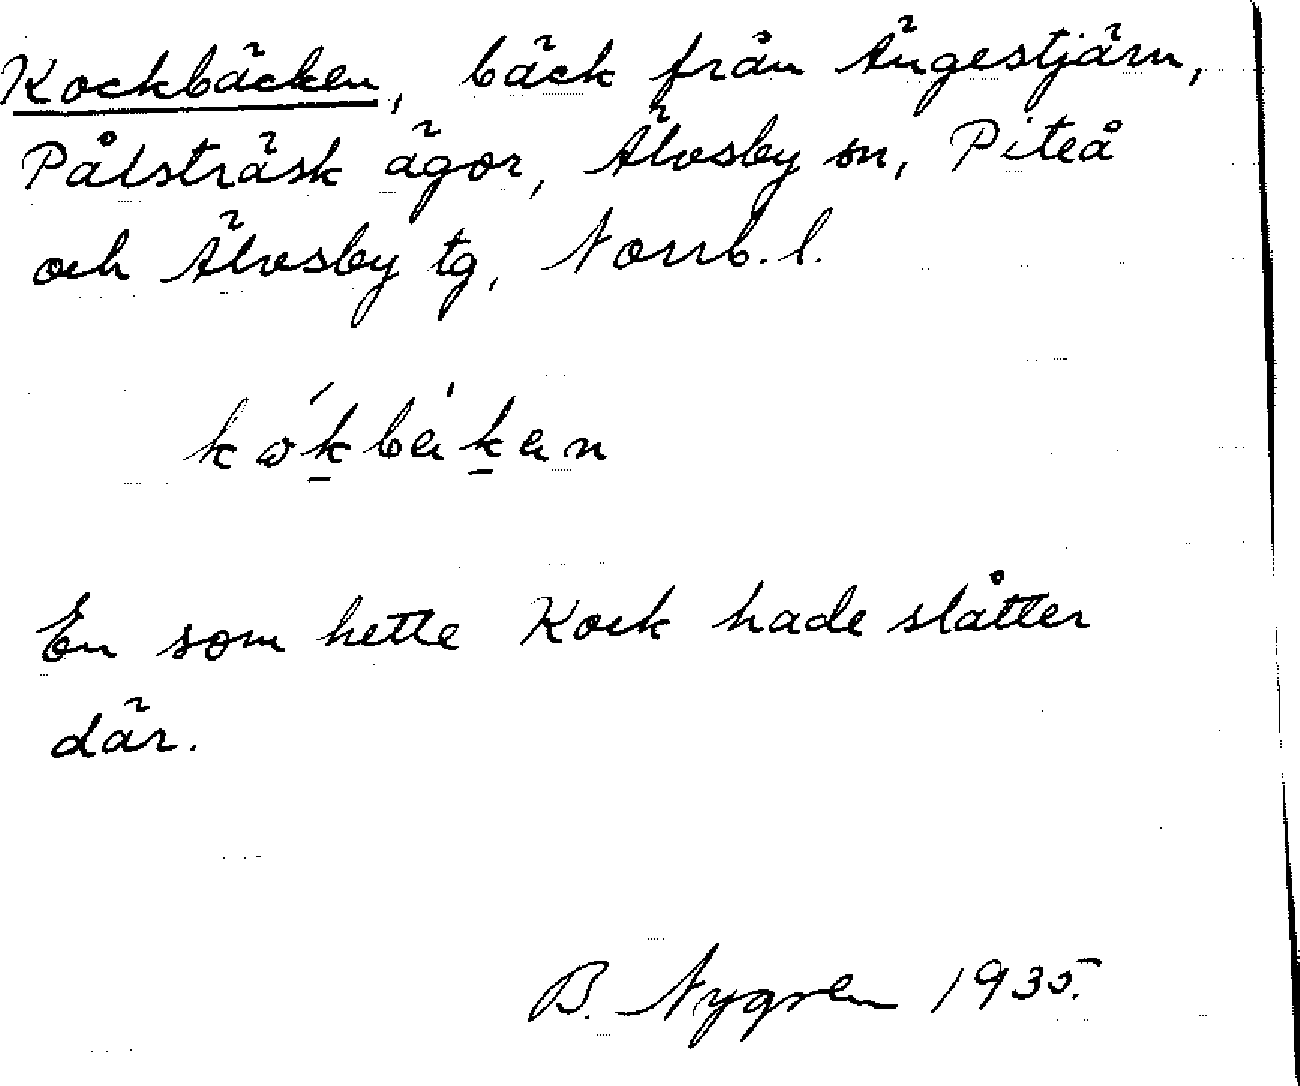 Kockbäcken, bäck från Ängestjärn,
Pålsträsk ägor, Älvsby sn, Piteå
och Älvsby tg, Norrb. l.
En som hette Kock hade slåtter
där.
B. Nygren 1935.